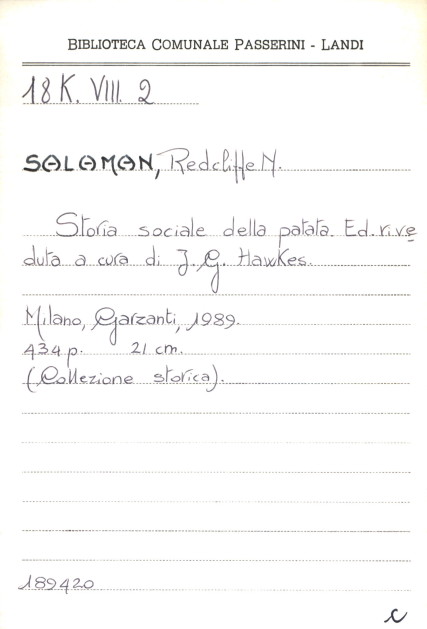 BIBLIOTECA COMUNALE PASSERINI - LANDI
18 K. VIII. 2
SALAMAN, Redcliffe N.
Storia sociale della patata. Ed. rive
duta a cura di J. G. Hawkes.
Milano, Garzanti, 1989.
434 p. 21 cm.
(Collezione storica).
189420
C